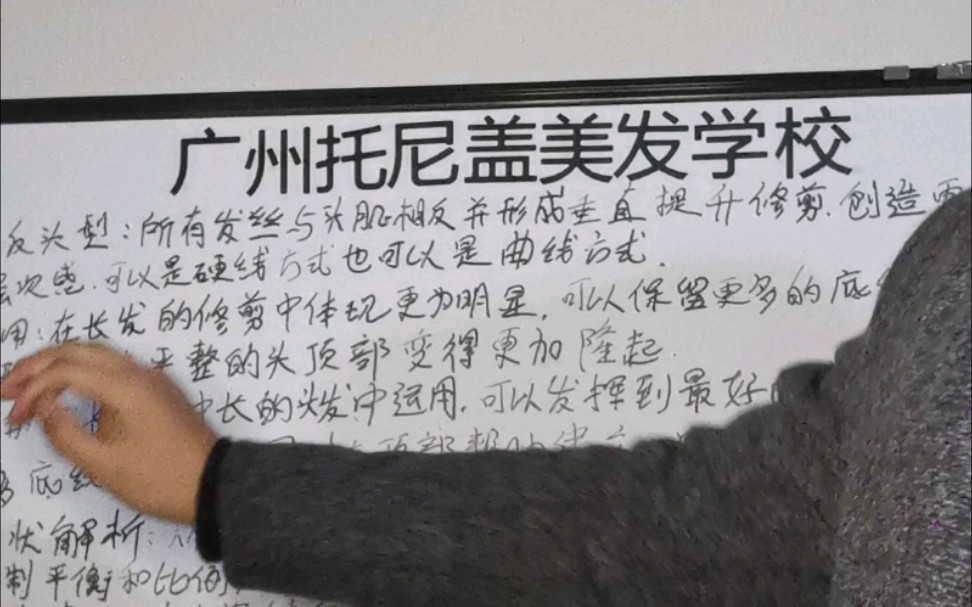 广州托尼盖美发学校
反头型：所有发丝与头肌相反并形成垂直提升修剪.创造更
层次感.可以是硬线方式也可以是曲线方式.
用：在长发的修剪中体现更为明显，可以保留更多的底
平整的头顶部变得更加隆起.
中长的头发中运用.可以发挥到最好
顶部帮助建立
底线
状解析：
制平衡和比例